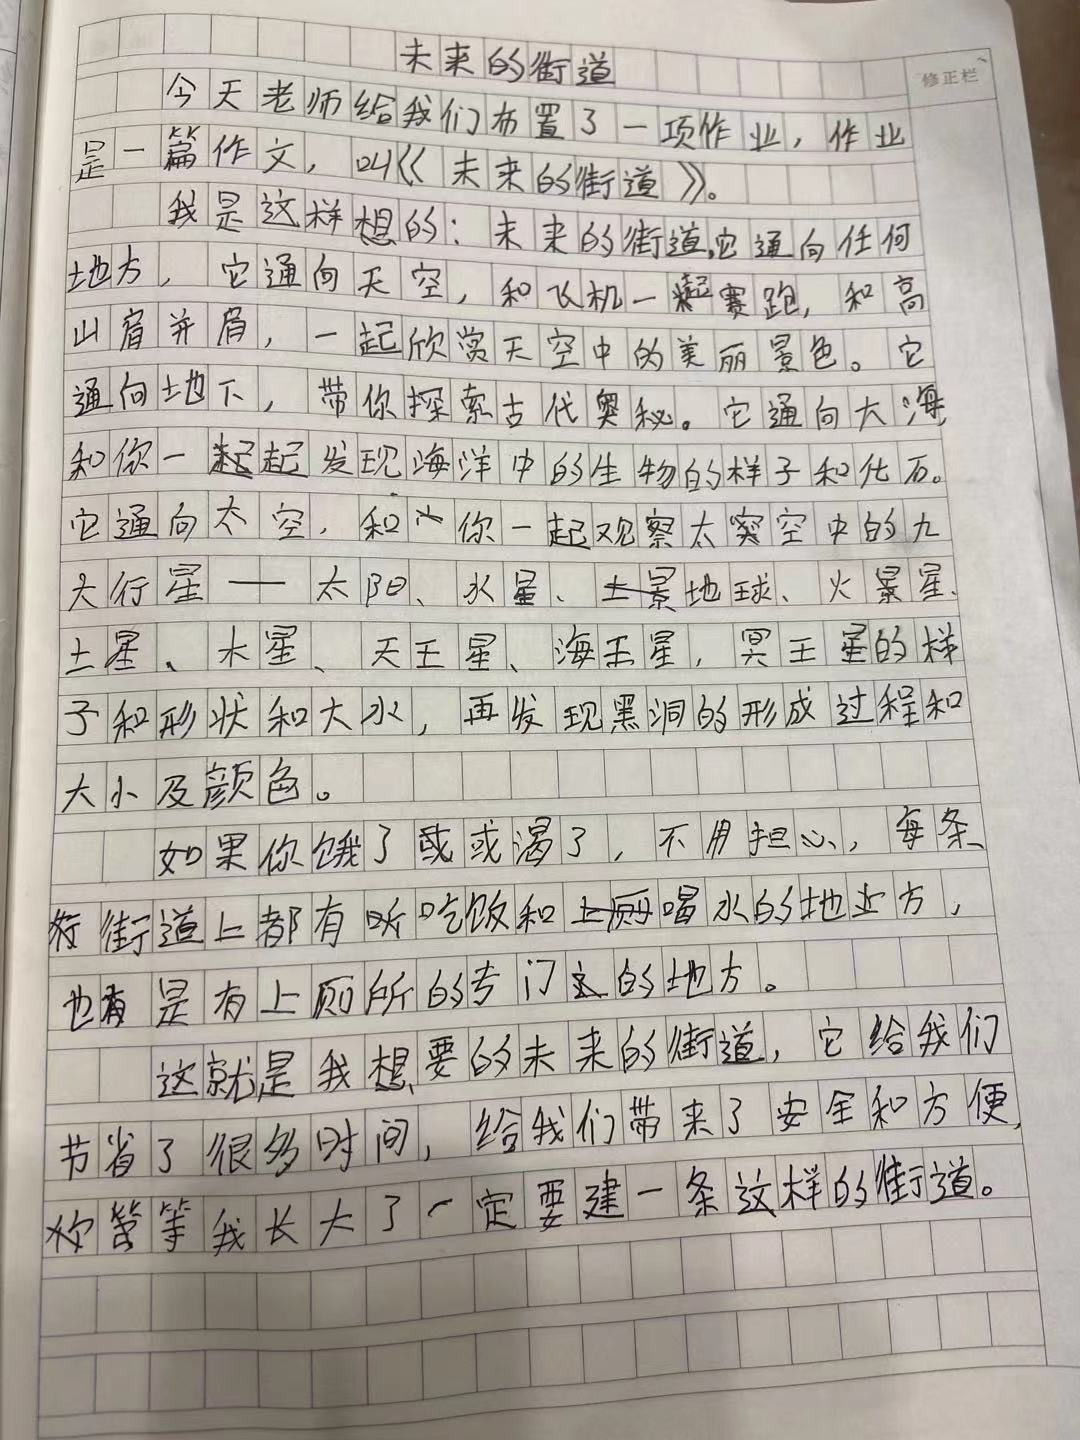 修正栏
未来的街道
今天老师给我们布置了一项作业，作业
是一篇作文，叫《未来的街道》。
我是这样想的：未来的街道，它通向任何
地方，它通向天空，和飞机一起赛跑，和高
山肩并肩，一起欣赏天空中的美丽景色。它
通向地下，带你探索古代奥秘。它通向大海，
和你一起发现海洋中的生物的样子和化石。
它通向太空，和你一起观察太空中的九
大行星——太阳、水星、地球、火星、
土星、木星、天王星、海王星，冥王星的样
子和形状和大小，再发现黑洞的形成过程和
大小及颜色。
如果你饿了或渴了，不用担心，每条
街道上都有吃饭和喝水的地方，
也是有上厕所的专门的地方。
这就是我想要的未来的街道，它给我们
节省了很多时间，给我们带来了安全和方便，
等我长大了一定要建一条这样的街道。